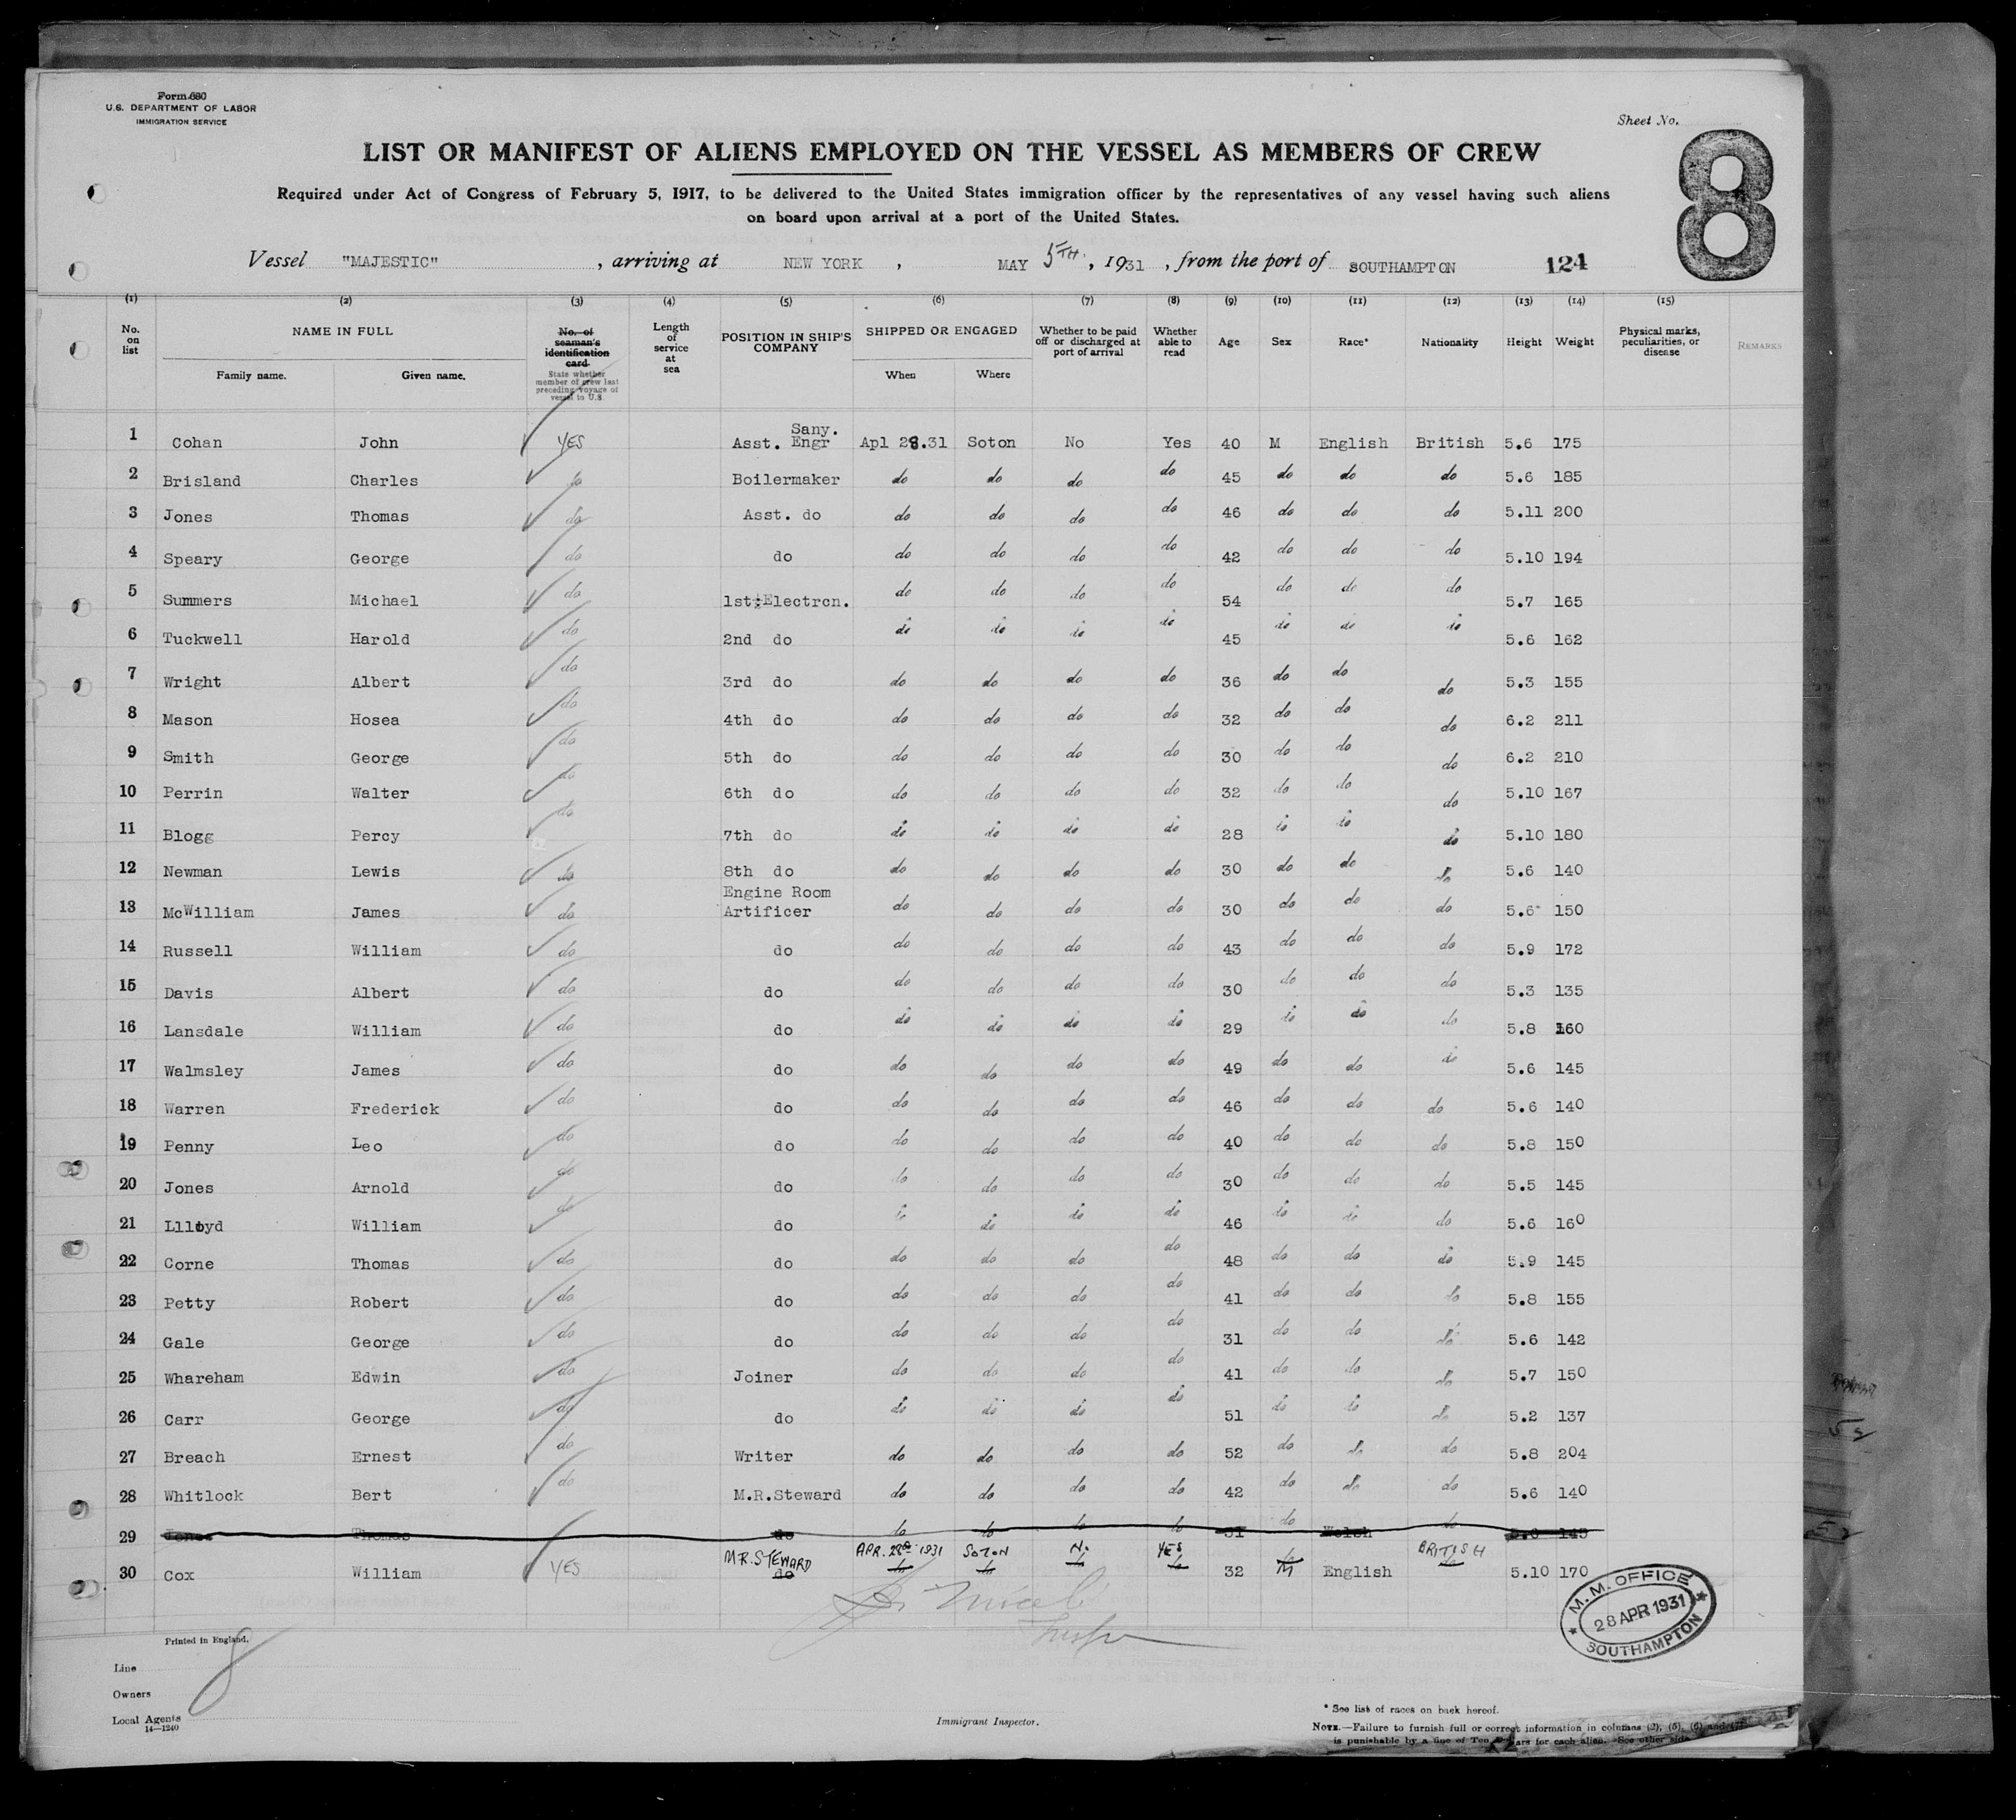 Form 680
U.S. DEPARTMENT OF LABOR
IMMIGRATION SERVICE
Sheet No.
8
LIST OR MANIFEST OF ALIENS EMPLOYED ON THE VESSEL AS MEMBERS OF CREW
Required under Act of Congress of February 5, 1917, to be delivered to the United States immigration officer by the representatives of any vessel having such aliens
on board upon arrival at a port of the United States.
Vessel "MAJESTIC", arriving at NEW YORK, MAY 5TH., 1931, from the port of SOUTHAMPTON 124
(1) (2) (3) (4) (5) (6) (7) (8) (9) (10) (11) (12) (13) (14) (15)
No. on list NAME IN FULL Family name. Given name. No. of seaman's identification card. State whether member of crew last preceding voyage of vessel to U.S. Length of service at sea POSITION IN SHIP'S COMPANY SHIPPED OR ENGAGED When Where Whether to be paid off or discharged at port of arrival Whether able to read Age Sex Race* Nationality Height Weight Physical marks, peculiarities, or disease REMARKS
1 Cohan John YES Asst. Sany. Engr Apl 28.31 Soton No Yes 40 M English British 5.6 175
2 Brisland Charles do Boilermaker do do do do 45 do do do 5.6 185
3 Jones Thomas do Asst. do do do do do 46 do do do 5.11 200
4 Speary George do do do do do do 42 do do do 5.10 194
5 Summers Michael do 1st Electrcn. do do do do 54 do do do 5.7 165
6 Tuckwell Harold do 2nd do do do do do 45 do do do 5.6 162
7 Wright Albert do 3rd do do do do do 36 do do do 5.3 155
8 Mason Hosea do 4th do do do do do 32 do do do 6.2 211
9 Smith George do 5th do do do do do 30 do do do 6.2 210
10 Perrin Walter do 6th do do do do do 32 do do do 5.10 167
11 Blogg Percy do 7th do do do do do 28 do do do 5.10 180
12 Newman Lewis do 8th do do do do do 30 do do do 5.6 140
13 McWilliam James do Engine Room Artificer do do do do 30 do do do 5.6 150
14 Russell William do do do do do do 43 do do do 5.9 172
15 Davis Albert do do do do do do 30 do do do 5.3 135
16 Lansdale William do do do do do do 29 do do do 5.8 160
17 Walmsley James do do do do do do 49 do do do 5.6 145
18 Warren Frederick do do do do do do 46 do do do 5.6 140
19 Penny Leo do do do do do do 40 do do do 5.8 150
20 Jones Arnold do do do do do do 30 do do do 5.5 145
21 Llloyd William do do do do do do 46 do do do 5.6 160
22 Corne Thomas do do do do do do 48 do do do 5.9 145
23 Petty Robert do do do do do do 41 do do do 5.8 155
24 Gale George do do do do do do 31 do do do 5.6 142
25 Whareham Edwin do Joiner do do do do 41 do do do 5.7 150
26 Carr George do do do do do do 51 do do do 5.2 137
27 Breach Ernest do Writer do do do do 52 do do do 5.8 204
28 Whitlock Bert do M.R.Steward do do do do 42 do do do 5.6 140
29 Jones Thomas do do do do do do Welsh do
30 Cox William YES M.R. STEWARD do APR. 28th 1931 do SOTON do No do YES do 32 M English BRITISH do 5.10 170
M.M. OFFICE
28 APR 1931
SOUTHAMPTON
Printed in England.
8
Line
Owners
Local Agents
14—1240
Immigrant Inspector.
* See list of races on back hereof.
NOTE.—Failure to furnish full or correct information in columns (2), (5), (6) and (7)
is punishable by a fine of Ten Dollars for each alien. See other side